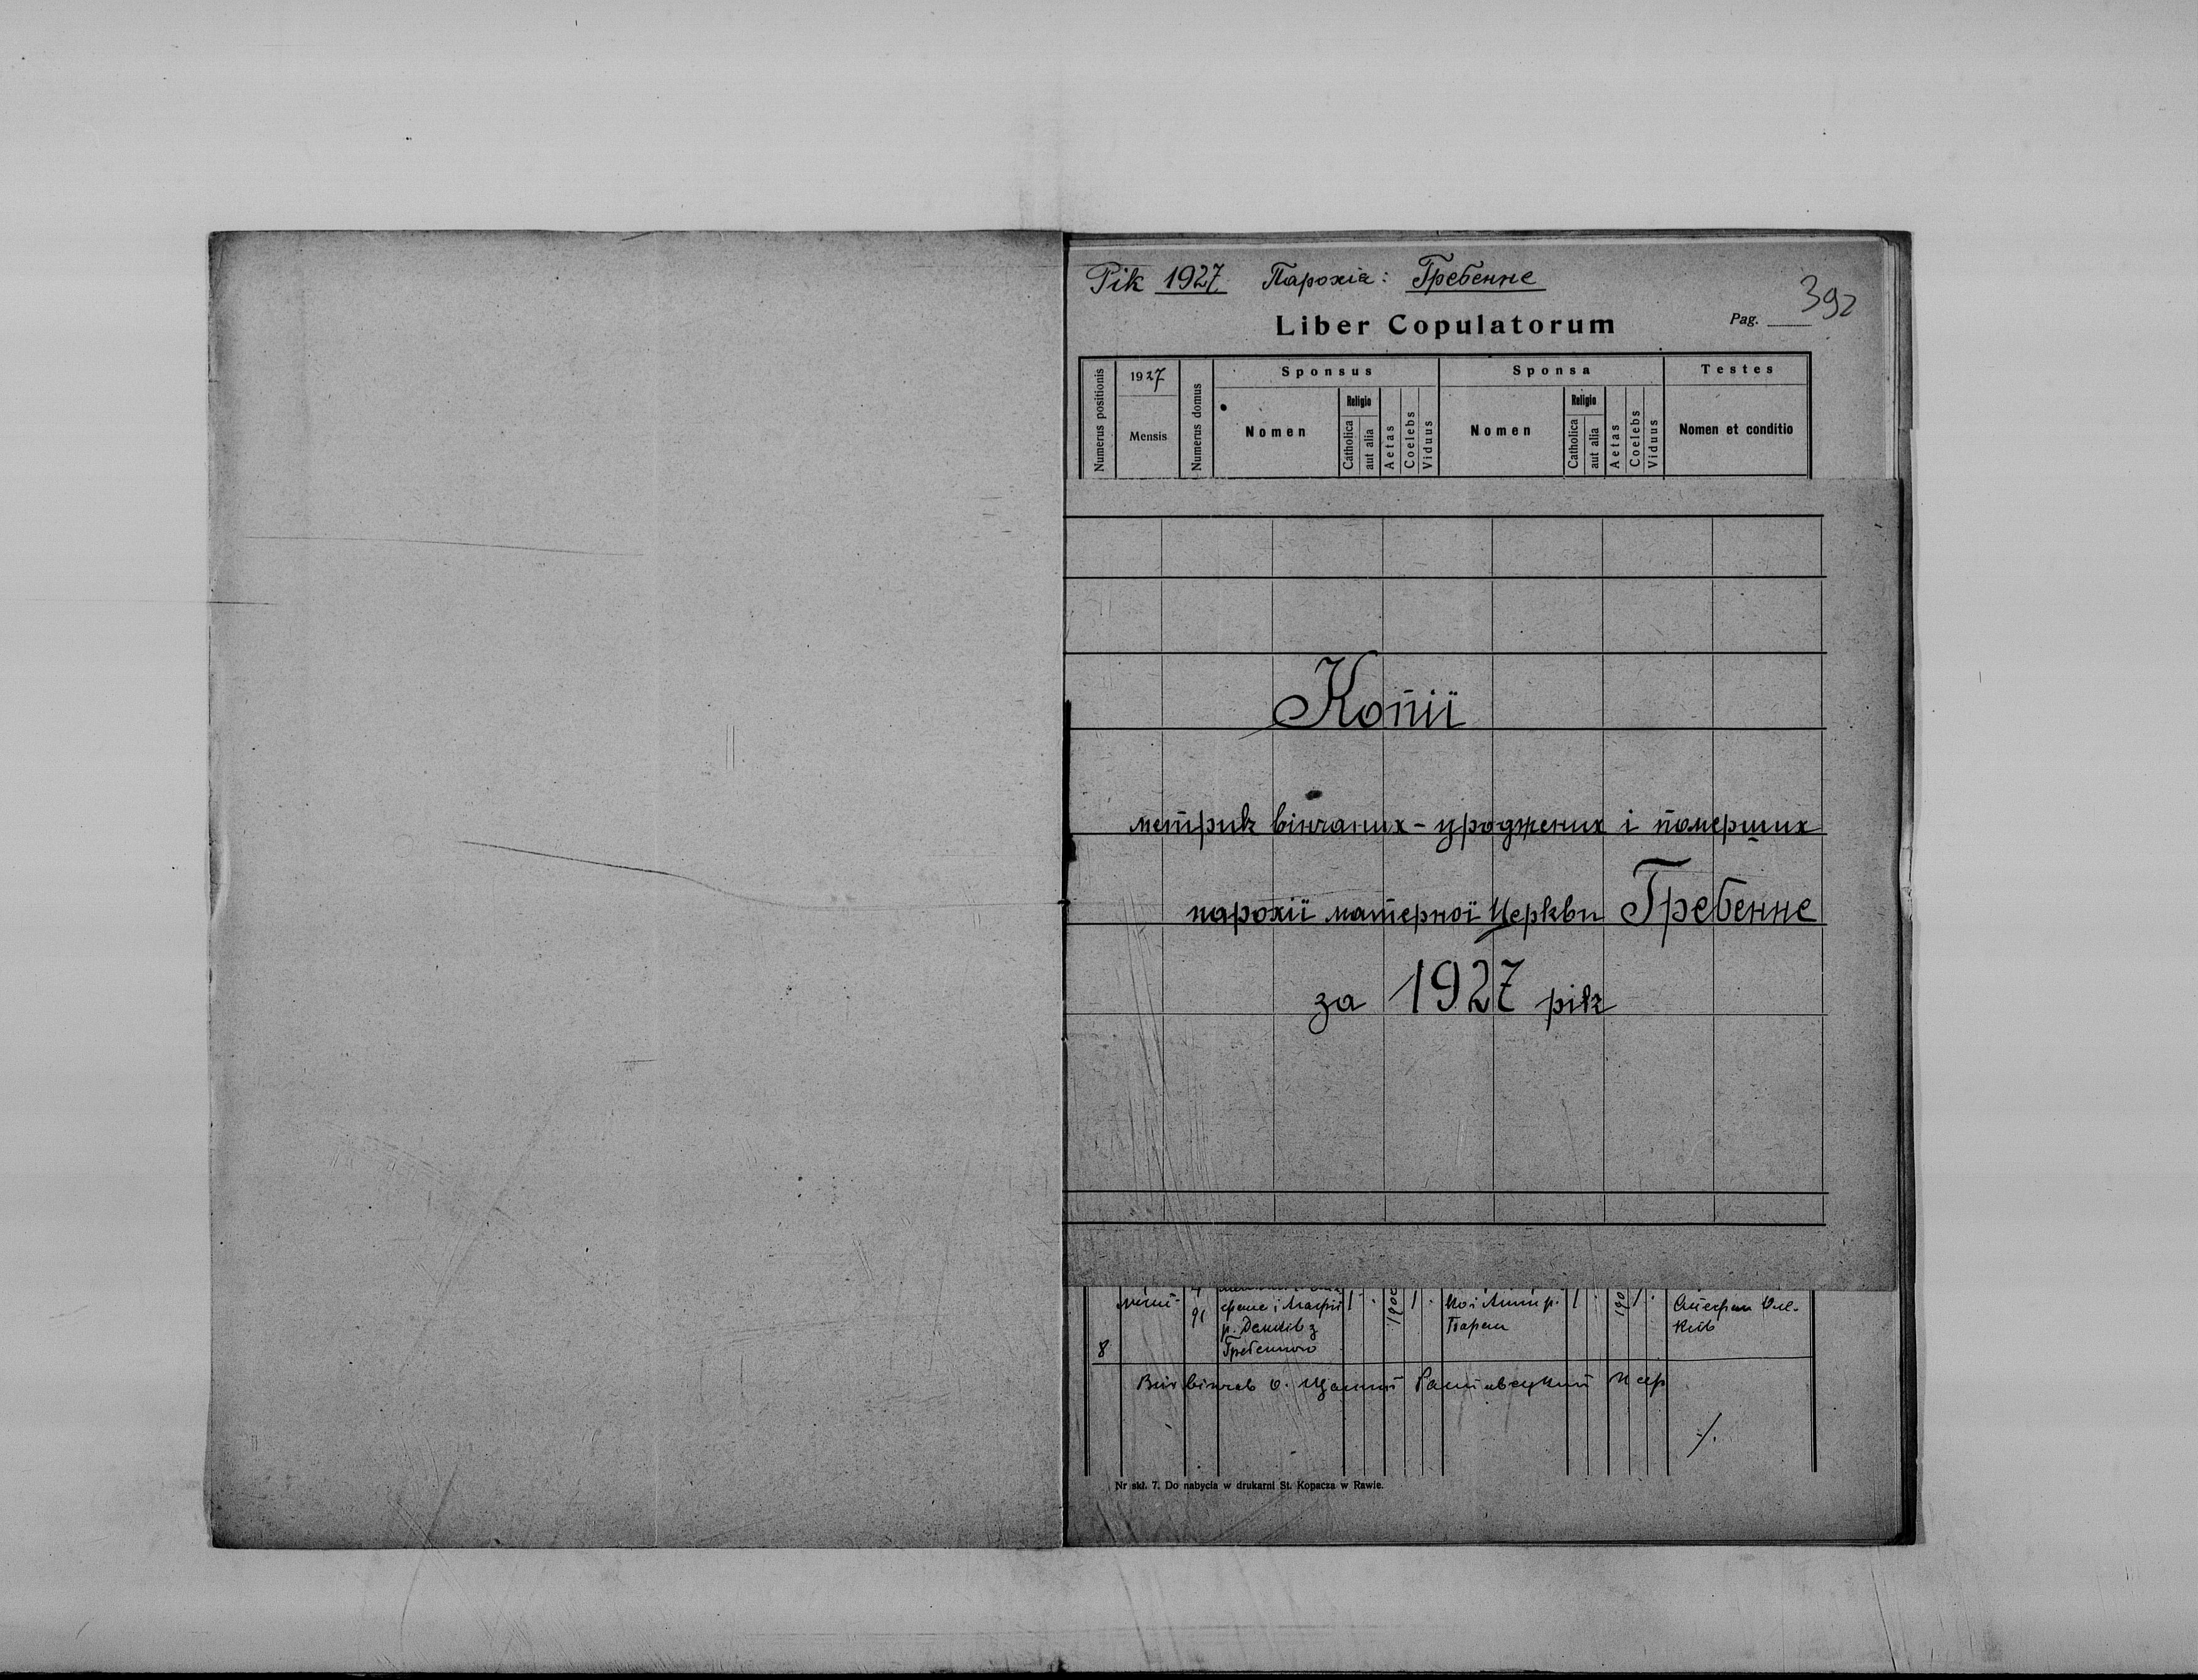 Рік 1927 Парохія: Гребенне
392
Liber Copulatorum
Pag.
Numerus positionis
1927
Mensis
Numerus domus
Sponsus
Nomen
Religio
Catholica
aut alia
Aetas
Coelebs
Viduus
Sponsa
Nomen
Religio
Catholica
aut alia
Aetas
Coelebs
Viduus
Testes
Nomen et conditio
Копії
метрик вінчаних - уроджених і померших
парохії матерної Церкви Гребенне
за 1927 рік
91
8
Гребенного
Nr skł. 7. Do nabycia w drukarni St. Kopacza w Rawie.